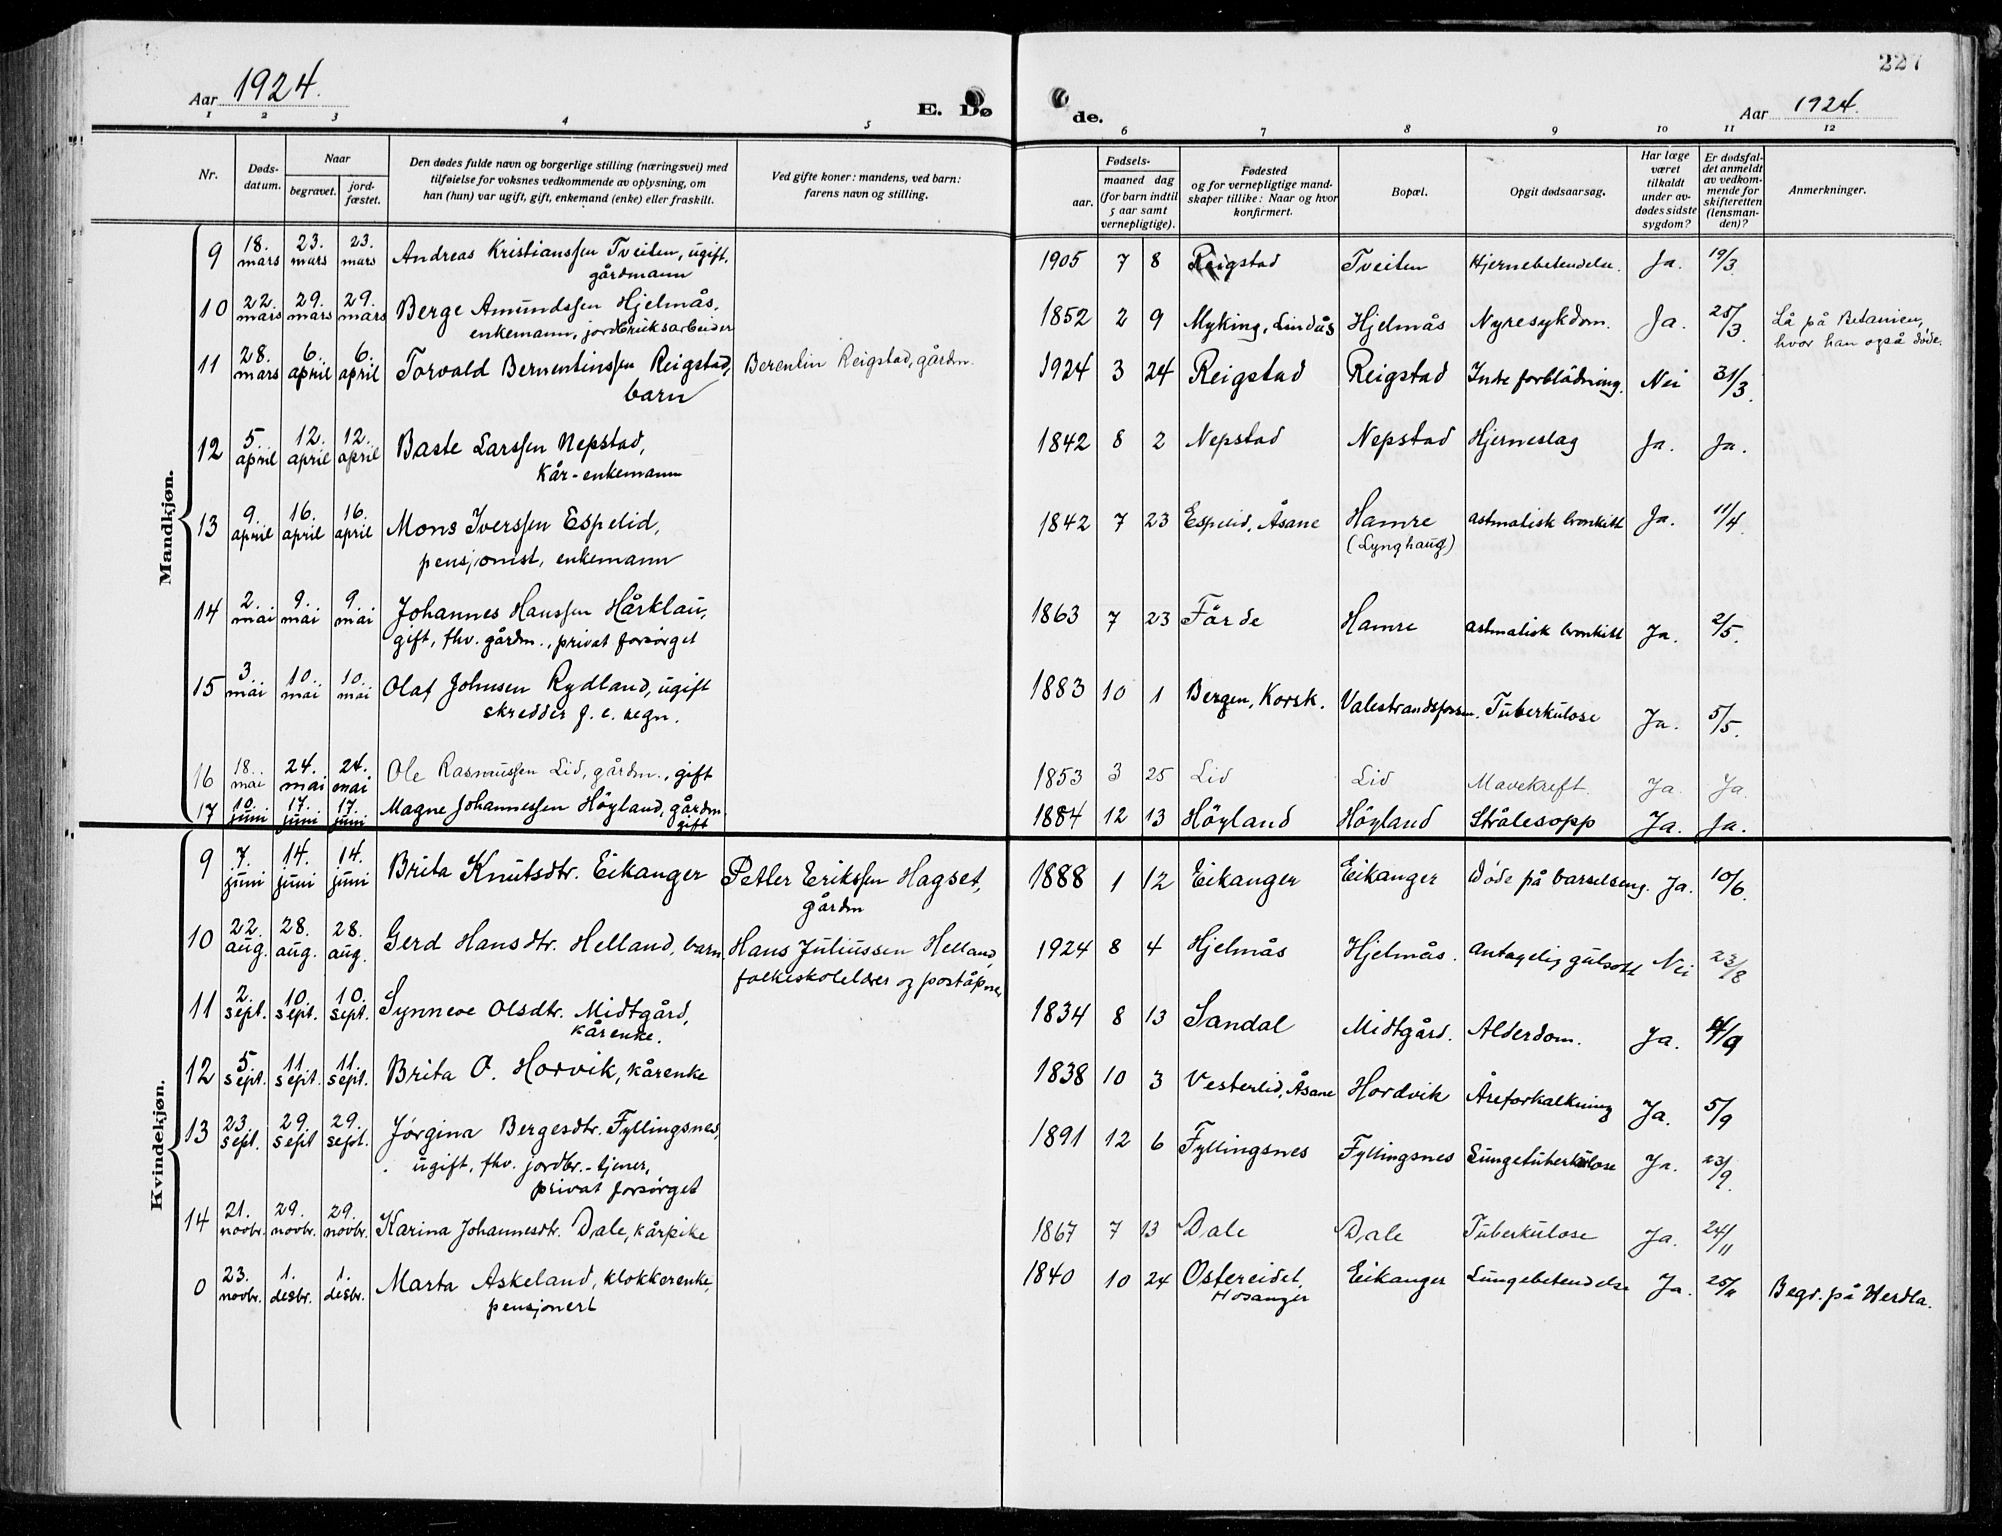 227
Aar 1924.
E. Døde.
Aar 1924.
1 2 3 4 5 6 7 8 9 10 11 12
Nr.
Døds-
datum.
Naar
begravet.
jord-
fæstet.
Den dødes fulde navn og borgerlige stilling (næringsvei) med
tilføielse for voksnes vedkommende av oplysning, om
han (hun) var ugift, gift, enkemand (enke) eller fraskilt.
Ved gifte koner: mandens, ved barn:
farens navn og stilling.
Fødsels-
aar.
maaned dag
(for barn indtil
5 aar samt
vernepligtige).
Fødested
og for vernepligtige mand-
skaper tillike: Naar og hvor
konfirmert.
Bopæl.
Opgit dødsaarsag.
Har læge
været
tilkaldt
under av-
dødes sidste
sygdom?
Er dødsfal-
det anmeldt
av vedkom-
mende for
skifteretten
(lensman-
den)?
Anmerkninger.
Mandkjøn.
9 18. mars 23. mars 23. mars Andreas Kristianssen Tveiten, ugift, 1905 7 8 Reigstad Tveiten Hjernebetendelse Ja. 19/3.
gårdmann
10 22. mars 29. mars 29. mars Berge Amundssen Hjelmås, 1852 2 9 Myking, Lindås Hjelmås Nyresykdom. Ja. 25/3. Lå på Betanien,
enkemann, jordbruksarbeider hvor han også døde.
11 28. mars 6. april 6. april Torvald Bernentinssen Reigstad, Berentin Reigstad, gårdm. 1924 3 24 Reigstad Reigstad Indre forblödning. Nei 31/3.
barn
12 5. april 12. april 12. april Baste Larssen Nepstad, 1842 8 2 Nepstad Nepstad Hjerneslag Ja. Ja.
kår-enkemann
13 9. april 16. april 16. april Mons Iverssen Espelid, 1842 7 23 Espelid, Åsane Hamre astmatisk bronkitt Ja. 11/4.
pensjonist, enkemann (Lynghaug)
14 2. mai 9. mai 9. mai Johannes Hanssen Hårklau, 1863 7 23 Förde Hamre astmatisk bronkitt Ja. 2/5.
gift, fhv. gårdm., privat forsörget
15 3. mai 10. mai 10. mai Olaf Johnsen Rydland, ugift 1883 10 1 Bergen, Korsk. Valestrandsfossen. Tuberkulose Ja. 5/5.
skredder f. e. regn.
16 18. mai 24. mai 24. mai Ole Rasmussen Lid, gårdm., gift 1853 3 25 Lid Lid Mavekreft. Ja. Ja.
17 10. juni 17. juni 17. juni Magne Johannessen Höyland, gårdm. 1884 12 13 Höyland Höyland Strålesopp Ja. Ja.
gift
Kvindekjøn.
9 7. juni 14. juni 14. juni Brita Knutsdtr. Eikanger Petter Erikssen Hagset, 1888 1 12 Eikanger Eikanger Döde på barselseng. Ja. 10/6.
gårdm
10 22. aug. 28. aug. 28. aug. Gerd Hansdtr. Helland, barn. Hans Juliussen Helland, 1924 8 4 Hjelmås Hjelmås. Antagelig gulsott Nei 23/8
folkeskolelærer og poståpner
11 2. sept. 10. sept. 10. sept. Synneve Olsdtr. Midtgård, 1834 8 13 Sandal Midtgård. Alderdom. Ja. 4/9
kårenke.
12 5. sept. 11. sept. 11. sept. Brita O. Horvik, kårenke 1838 10 3 Vesterlid, Åsane Hordvik Åreforkalkning Ja. 5/9
13 23. sept. 29. sept 29. sept. Jørgina Bergesdtr. Fyllingsnes, 1891 12 6 Fyllingsnes Fyllingsnes Lungetuberkulose Ja. 23/9.
ugift, fhv. jordbr.-tjener,
privat forsörget
14 21. novbr. 29. novbr. 29. novbr. Karina Johannesdtr. Dale, kårpike 1867 7 13 Dale Dale Tuberkulose Ja. 24/11
0 23. novbr. 1. desbr. 1. desbr. Marta Askeland, klokkerenke, 1840 10 24 Ostereidet, Eikanger Lungebetendelse Ja. 25/11 Begr. på Herdla.
pensjonert Hosanger